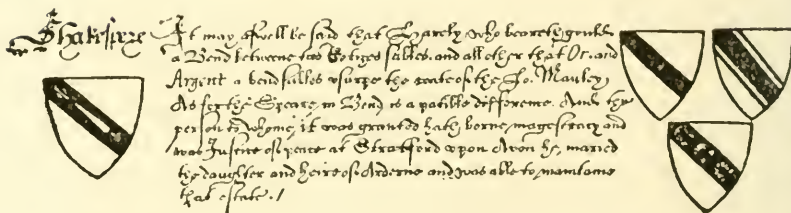 Shakespere It may aswell be said that Harely who beareth gould
a Bend betweene two Cotizes sables, and all other that Or, and
Argent a bend sables usurpe the coate of the Lo. Mauley
As for the Speare in Bend is a patible difference. And the
person to whome it was granted hath borne magestracy and
was Justice of peace at Stratford upon Avon he, maried
the daughter and heire of Arderne and was able to maintaine
that estate. /